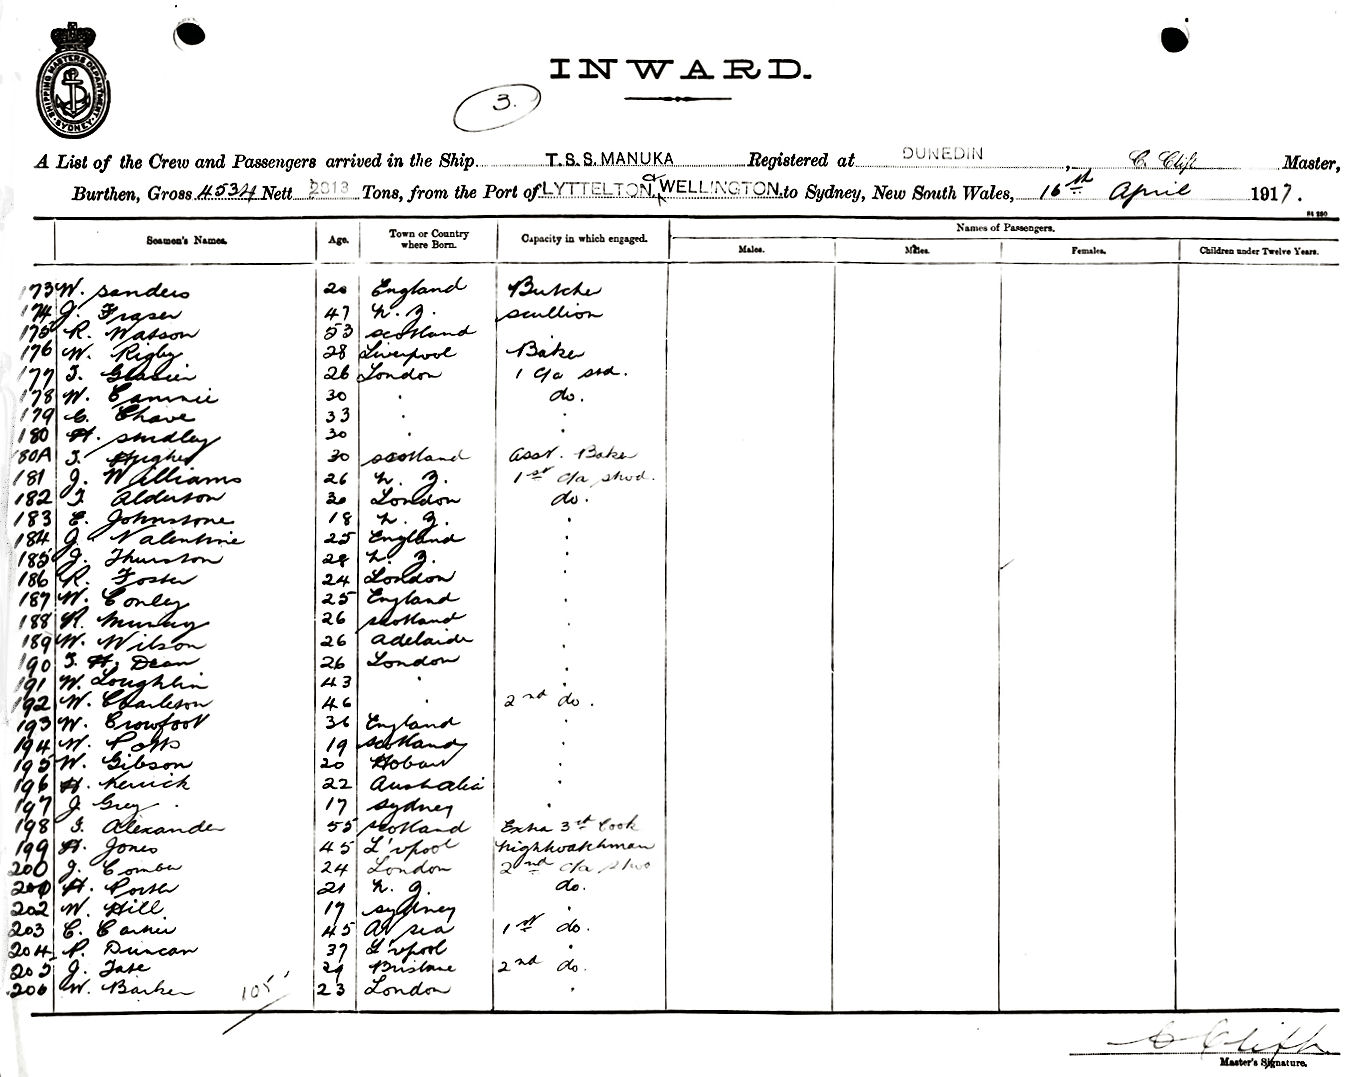 SHIPPING MASTERS DEPARTMENT. SYDNEY.
INWARD.
3.
A List of the Crew and Passengers arrived in the Ship T.S.S. MANUKA Registered at DUNEDIN, C. Clift Master,
Burthen, Gross 4534 Nett Tons, from the Port of LYTTELTON & WELLINGTON to Sydney, New South Wales, 16 April 1917.
Seamen's Names. Age. Town or Country where Born. Capacity in which engaged. Names of Passengers.
Males. Males. Females. Children under Twelve Years.
173 W. Sanders 20 England Butcher
174 J. Fraser 47 N. Z. Scullion
175 R. Watson 53 Scotland "
176 W. Rigby 28 Liverpool Baker
177 26 London 1 c/a std.
178 W. 30 " do.
179 C. Chave 33 " "
180 H. 30 " "
80A T. Hughes 30 Scotland Asst. Baker
181 J. Williams 26 N. Z. 1st c/a stwd.
182 T. Alderton 30 London do.
183 E. Johnstone 18 N. Z. "
184 J. Valentine 25 England "
185 J. Thurston 28 N. Z. "
186 R. Foster 24 London "
187 W. Conley 25 England "
188 R. Murray 26 Scotland "
189 W. Wilson 26 Adelaide "
190 T. H. Dean 26 London "
191 W. Loughlin 43 " "
192 W. Charleson 46 2nd do.
193 W. Crowfoot 36 England "
194 W. Potts 19 Scotland "
195 W. Gibson 20 Hobart "
196 H. Kerrick 22 Australia "
197 J. Grey 17 Sydney "
198 T. Alexander 55 Scotland Extra 3rd Cook
199 H. Jones 45 L'vpool Nightwatchman
200 J. Comber 24 London 2nd c/a stwd
201 H. Porter 21 N. Z. do.
202 W. Hill 17 Sydney "
203 C. 45 At sea 1st do.
204 P. Duncan 37 L'vpool "
205 J. Tate 29 Brisbane 2nd do.
206 W. Barker 23 London "
105
C Clift
Master's Signature.